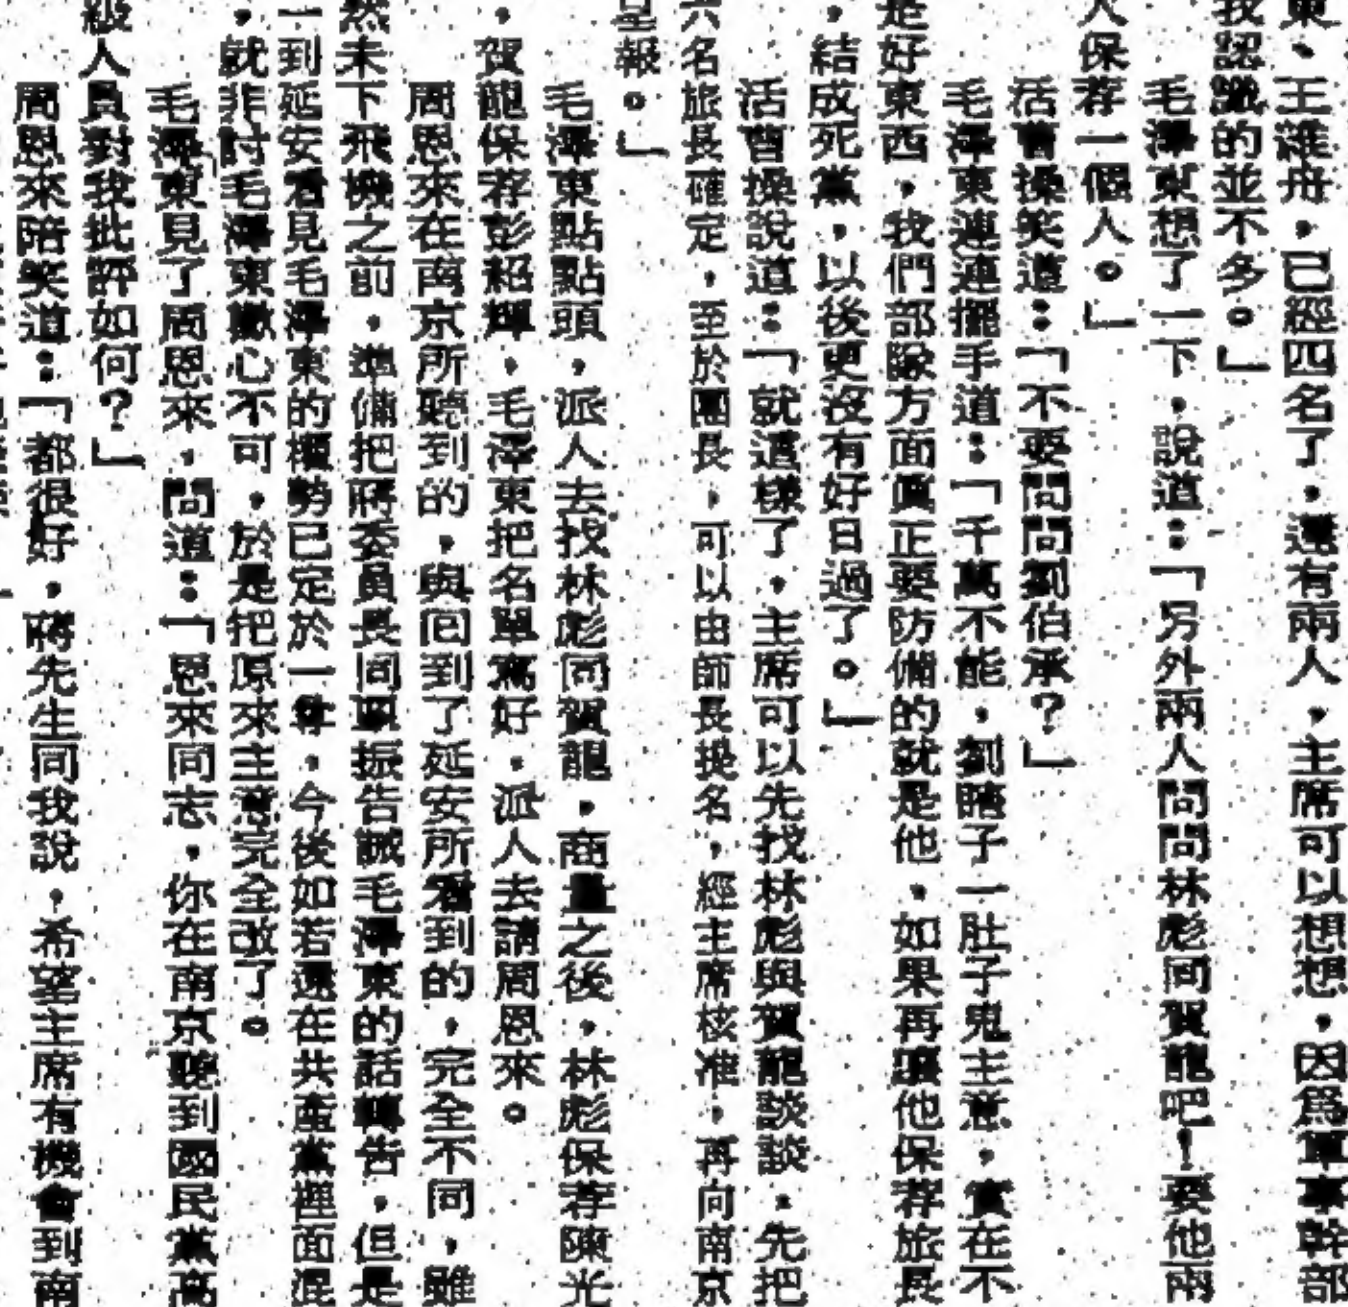 東、王維舟，已經四名了，還有兩人，主席可以想想，因爲軍事幹部
我認識的並不多。」
毛澤東想了一下，說道：「另外兩人問問林彪同賀龍吧！要他兩
人保荐一個人。」
活曹操笑道：「不要問問劉伯承？」
毛澤東連連擺手道：「千萬不能，劉瞎子一肚子鬼主意，實在不
是好東西，我們部隊方面眞正要防備的就是他，如果再讓他保荐旅長
，結成死黨，以後更沒有好日過了。」
活曹操說道：「就這樣了，主席可以先找林彪與賀龍談談，先把
六名旅長確定，至於團長，可以由師長提名，經主席核准，再向南京
呈報。」
毛澤東點點頭，派人去找林彪同賀龍，商量之後，林彪保荐陳光
，賀龍保荐彭紹輝，毛澤東把名單寫好，派人去請周恩來。
周恩來在南京所聽到的，與回到了延安所看到的，完全不同，雖
然未下飛機之前，準備把蔣委員長同顧振告誡毛澤東的話轉告，但是
一到延安看見毛澤東的權勢已定於一尊，今後如若還在共產黨裡面混
，就非討毛澤東歡心不可，於是把原來主意完全改了。
毛澤東見了周恩來，問道：「恩來同志，你在南京聽到國民黨高
級人員對我批評如何？」
周恩來陪笑道：「都很好，蔣先生同我說，希望主席有機會到南